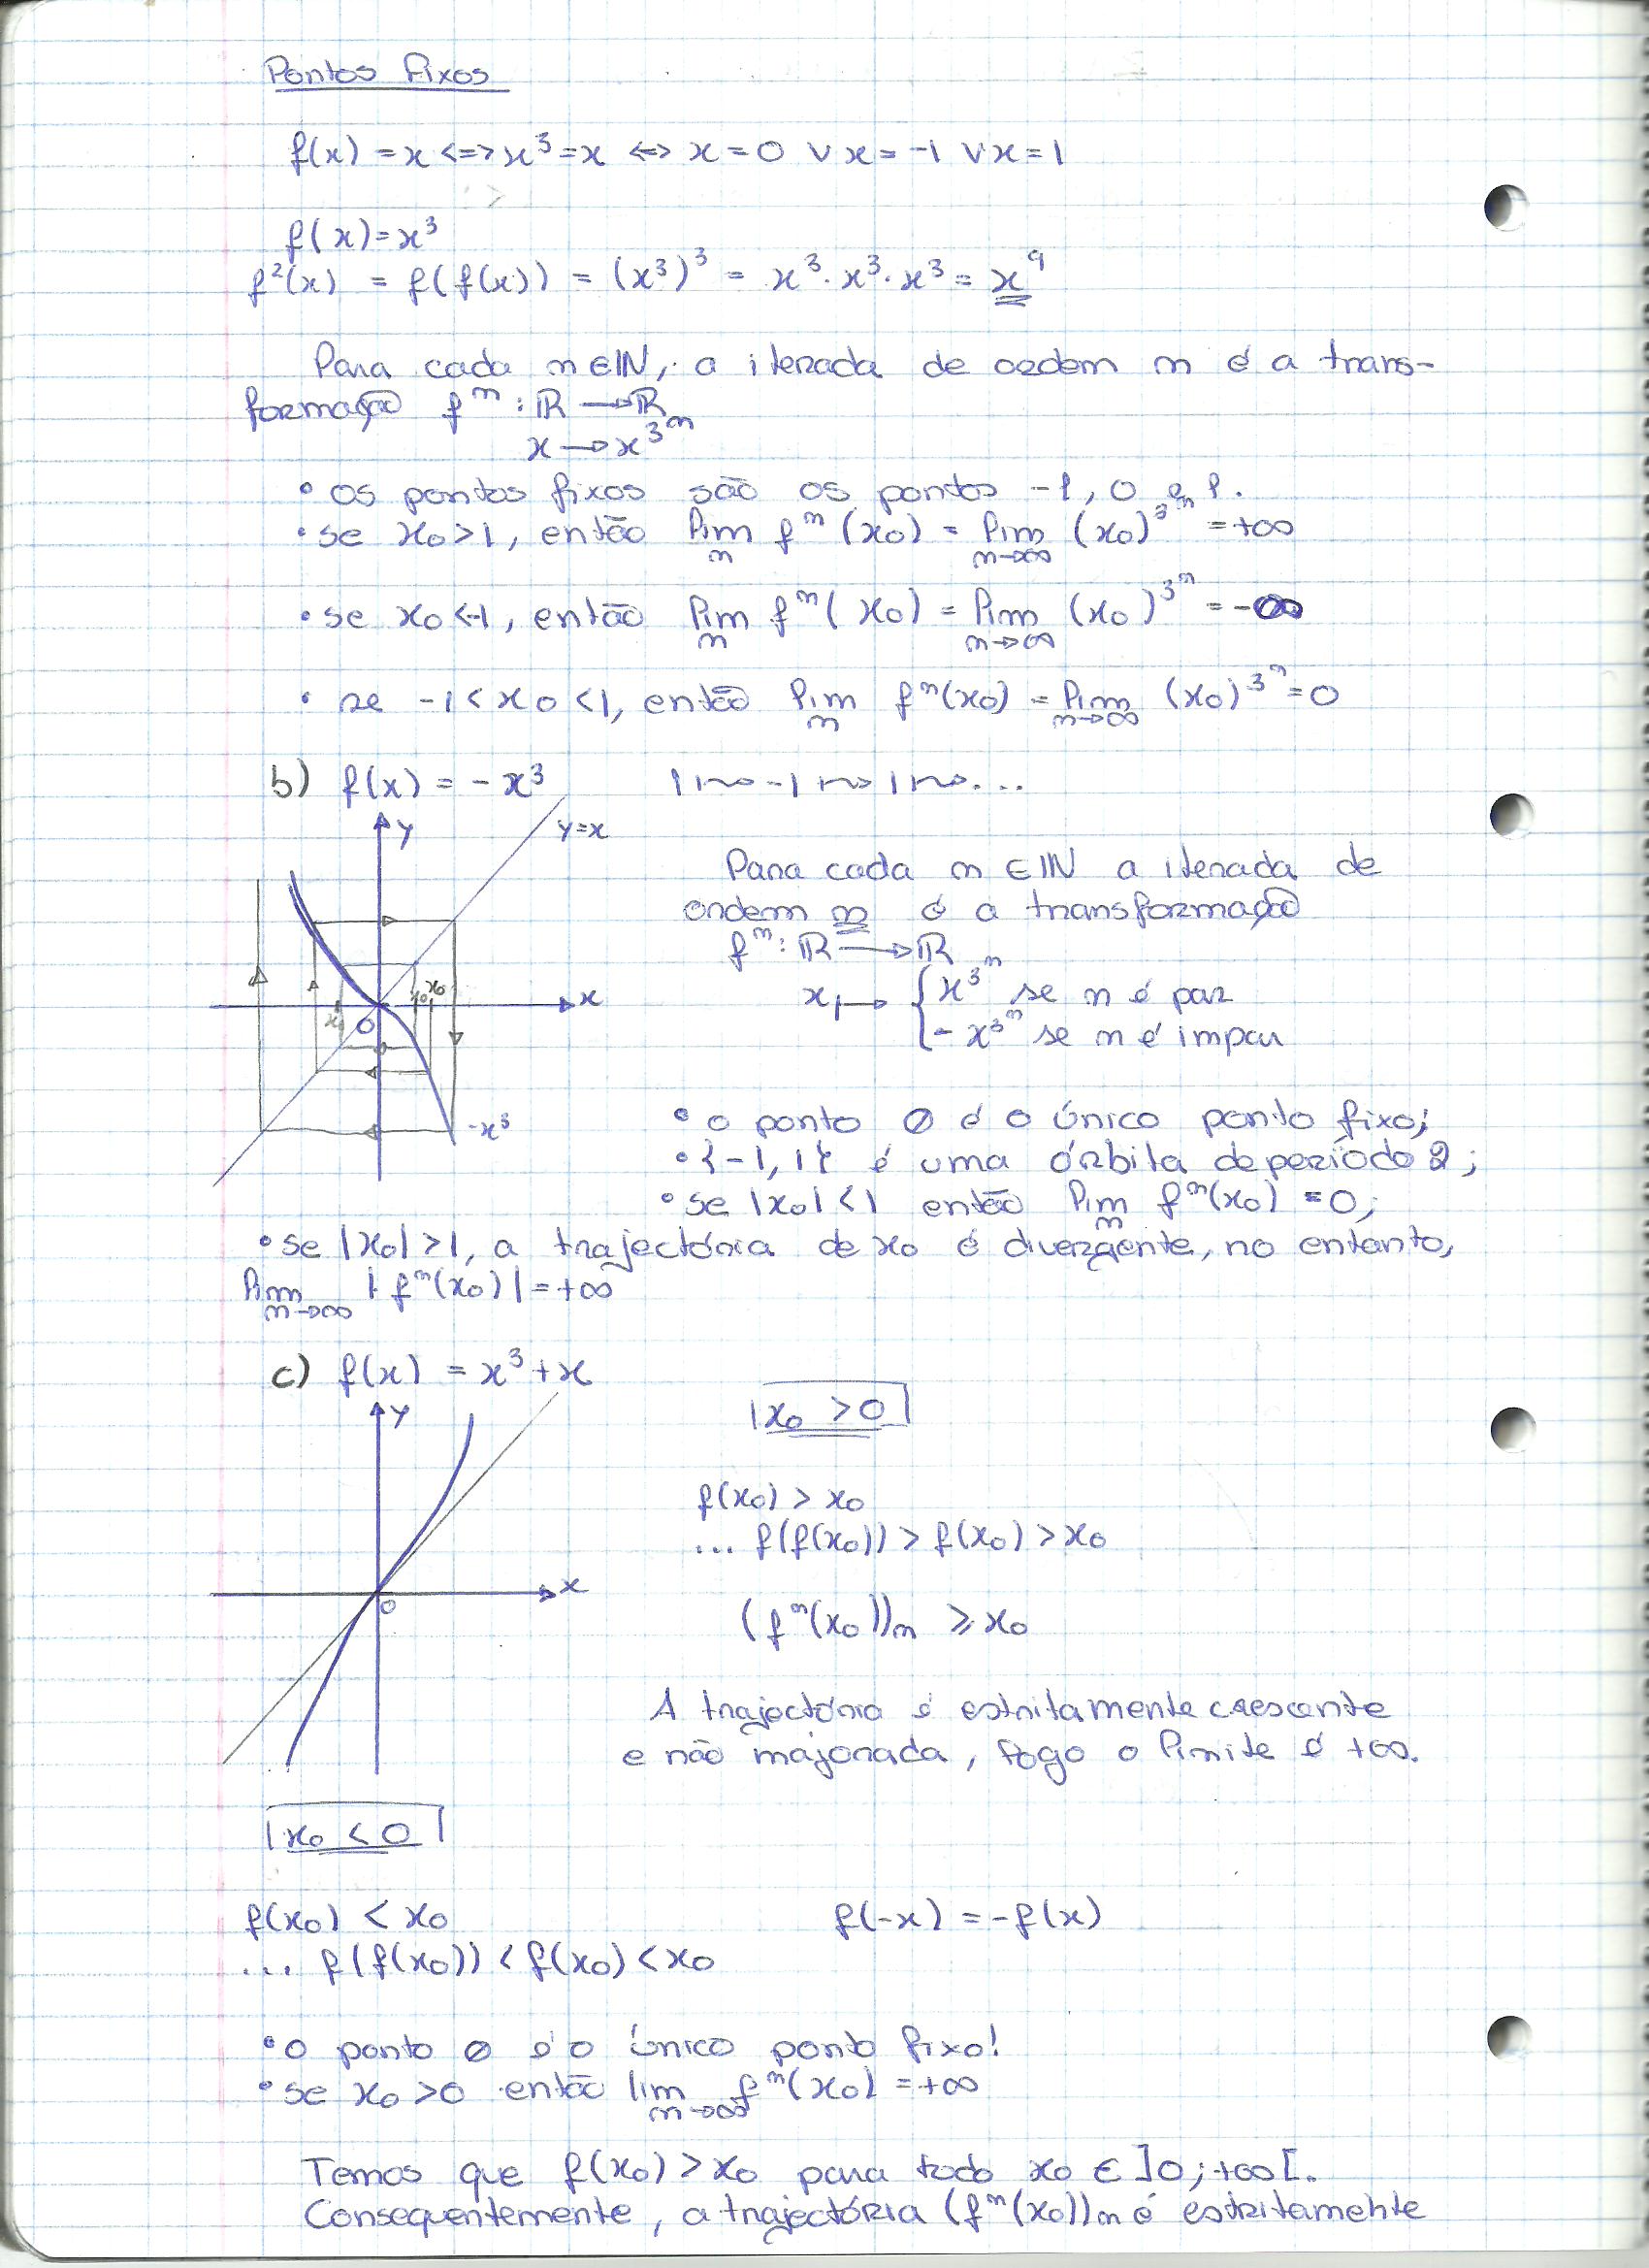 Pontos Fixos
f(x) = x <=> x³ = x <=> x = 0 ∨ x = -1 ∨ x = 1
f(x) = x³
f²(x) = f(f(x)) = (x³)³ = x³·x³·x³ = x⁹
Para cada n ∈ IN, a iterada de ordem n é a trans-
formação fⁿ : IR → IR
x → x^3^n
• os pontos fixos são os pontos -1, 0 e 1.
• se x₀ > 1, então lim_n fⁿ(x₀) = lim_n→∞ (x₀)^3^n = +∞
• se x₀ < -1, então lim_n fⁿ(x₀) = lim_n→∞ (x₀)^3^n = -∞
• se -1 < x₀ < 1, então lim_n fⁿ(x₀) = lim_n→∞ (x₀)^3^n = 0
b) f(x) = -x³ 1 ↦ -1 ↦ 1 ↦ ...
y y=x
Para cada n ∈ IN a iterada de
ordem n é a transformação
fⁿ : IR → IR
x ↦ { x^3^n se n é par
- x^3^n se n é impar
x₀ x₀ x
x₀ 0
-x³
• o ponto 0 é o único ponto fixo;
• {-1, 1} é uma órbita de período 2;
• se |x₀| < 1 então lim_n fⁿ(x₀) = 0;
• se |x₀| > 1, a trajectória de x₀ é divergente, no entanto,
lim_n→∞ |fⁿ(x₀)| = +∞
c) f(x) = x³ + x
y
x
0
x₀ > 0
f(x₀) > x₀
... f(f(x₀)) > f(x₀) > x₀
(fⁿ(x₀))n ≥ x₀
A trajectória é estritamente crescente
e não majorada, logo o limite é +∞.
x₀ < 0
f(x₀) < x₀ f(-x) = -f(x)
... f(f(x₀)) < f(x₀) < x₀
• o ponto 0 é o único ponto fixo!
• se x₀ > 0 então lim_n→∞ fⁿ(x₀) = +∞
Temos que f(x₀) > x₀ para todo x₀ ∈ ]0; +∞[.
Consequentemente, a trajectória (fⁿ(x₀))n é estritamente